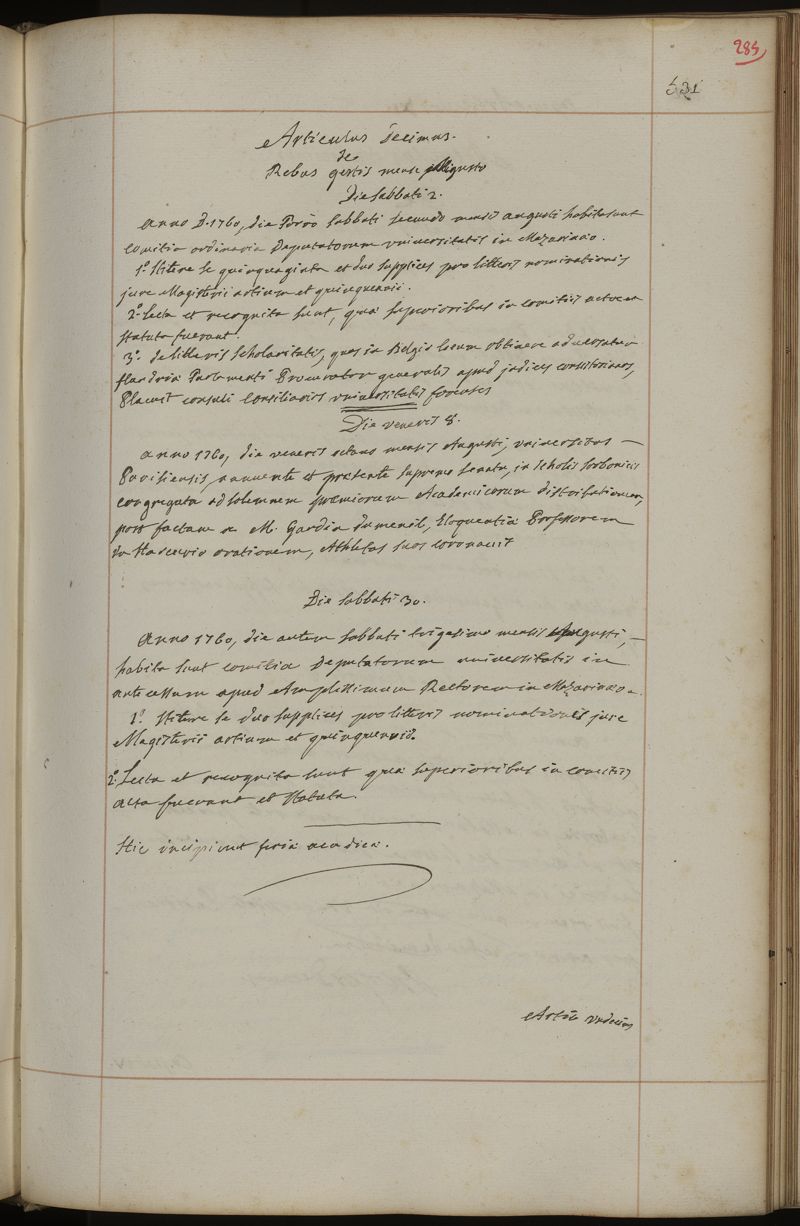 285
531
Articulus decimus.
de
Rebus gestis mense Augusto
Die sabbati 2.
Anno D. 1760, die porro sabbati secundo mensis augusti habita sunt
comitia ordinaria Deputatorum universitatis in Mazarinao.
1.º Stitere se quinquaginta et duo supplices pro litteris nominationis
jure Magisterii artium et quinquennii.
2.º Lecta et recognita sunt, quæ superioribus in comitiis acta et
statuta fuerant.
3.º de litteris scholaritatis, quas in Belgio locum obtinere adversatur
flandriæ Parlamenti Procurator generalis apud judices
Placuit consuli Consiliarios universitatis forenses
Die veneris 8.
anno 1760, die veneris octava mensis Augusti, universitas
Parisiensis, annuente et præsente supremo senatu, in scholis sorbonicis
congregata ad solemnem præmiorum Academicorum distributionem,
post factam a M. Gardin dumenil, Eloquentiæ Professorem
in Harcurio orationem, Athletas suos coronavit
Die sabbati 30.
Anno 1760, die autem sabbati trigesimo mensis Augusti,
habita sunt comitia Deputatorum universitatis in
antecessum apud Amplissimum Rectorem in Mazarinao.
1.º Stitere se duo supplices pro litteris nominationis jure
Magisterii artium et quinquennii.
2.º Lecta et recognita sunt quæ superioribus in comitiis
acta fuerant et statuta.
Hic incipiunt feriæ academicæ.
Art.